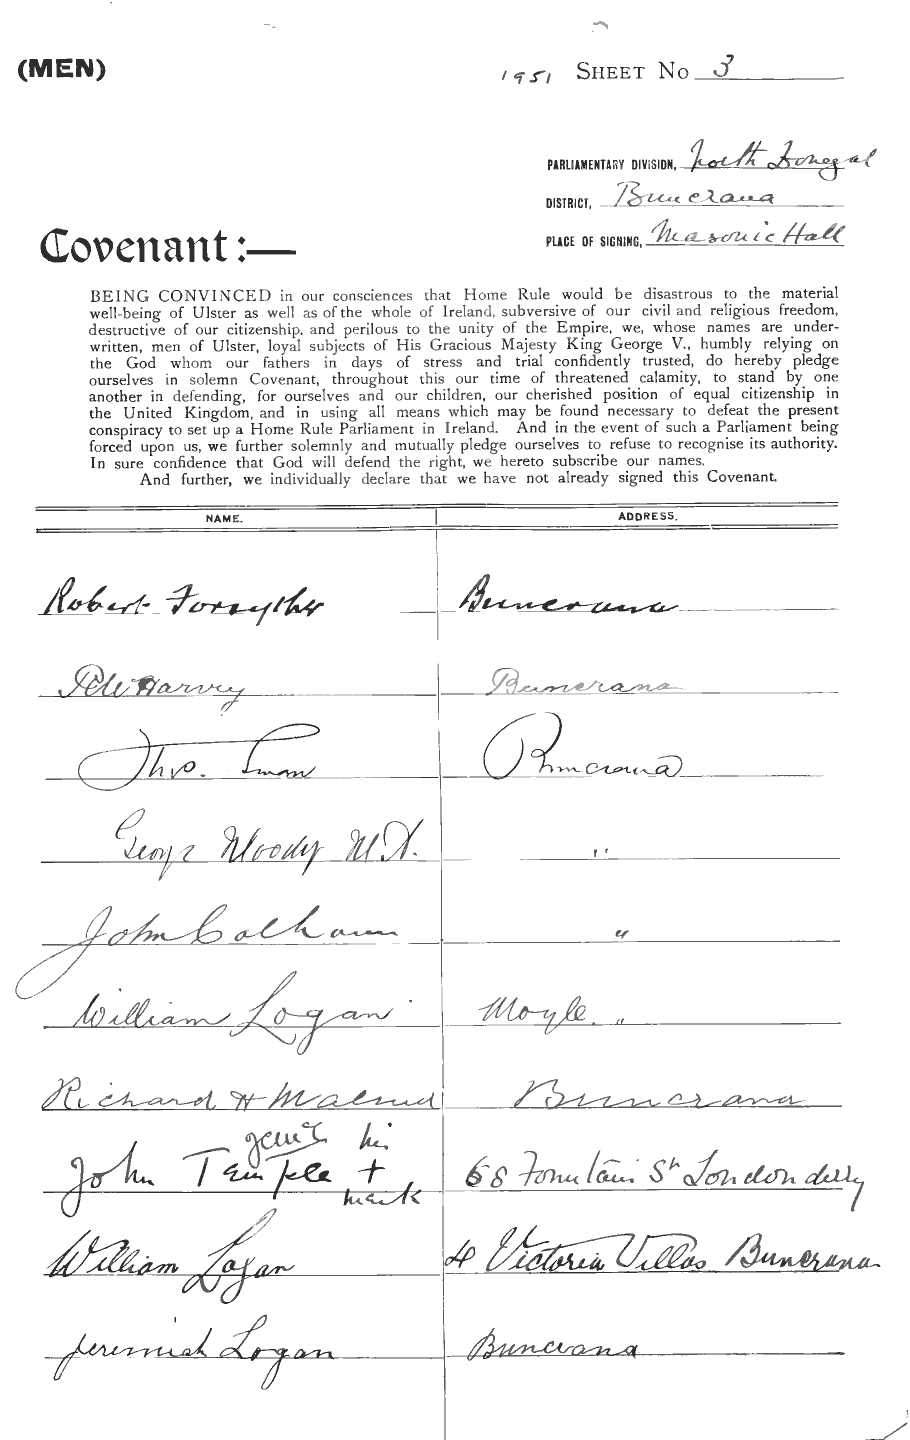 (MEN)
1951 SHEET No 3
PARLIAMENTARY DIVISION, North Donegal
DISTRICT, Buncrana
PLACE OF SIGNING, Masonic Hall
Covenant:—
BEING CONVINCED in our consciences that Home Rule would be disastrous to the material
well-being of Ulster as well as of the whole of Ireland, subversive of our civil and religious freedom,
destructive of our citizenship, and perilous to the unity of the Empire, we, whose names are under-
written, men of Ulster, loyal subjects of His Gracious Majesty King George V., humbly relying on
the God whom our fathers in days of stress and trial confidently trusted, do hereby pledge
ourselves in solemn Covenant, throughout this our time of threatened calamity, to stand by one
another in defending, for ourselves and our children, our cherished position of equal citizenship in
the United Kingdom, and in using all means which may be found necessary to defeat the present
conspiracy to set up a Home Rule Parliament in Ireland. And in the event of such a Parliament being
forced upon us, we further solemnly and mutually pledge ourselves to refuse to recognise its authority.
In sure confidence that God will defend the right, we hereto subscribe our names.
And further, we individually declare that we have not already signed this Covenant.
NAME. ADDRESS.
Robert Forsythe Buncrana
Harvey Buncrana
Thos. Swan Buncrana
George Moody M.A. "
John Colhoun "
William Logan Moyle "
Richard H Buncrana
his
John Temple + 68 Fountain St Londonderry
mark
William Logan 4 Victoria Villas Buncrana
Jeremiah Logan Buncrana